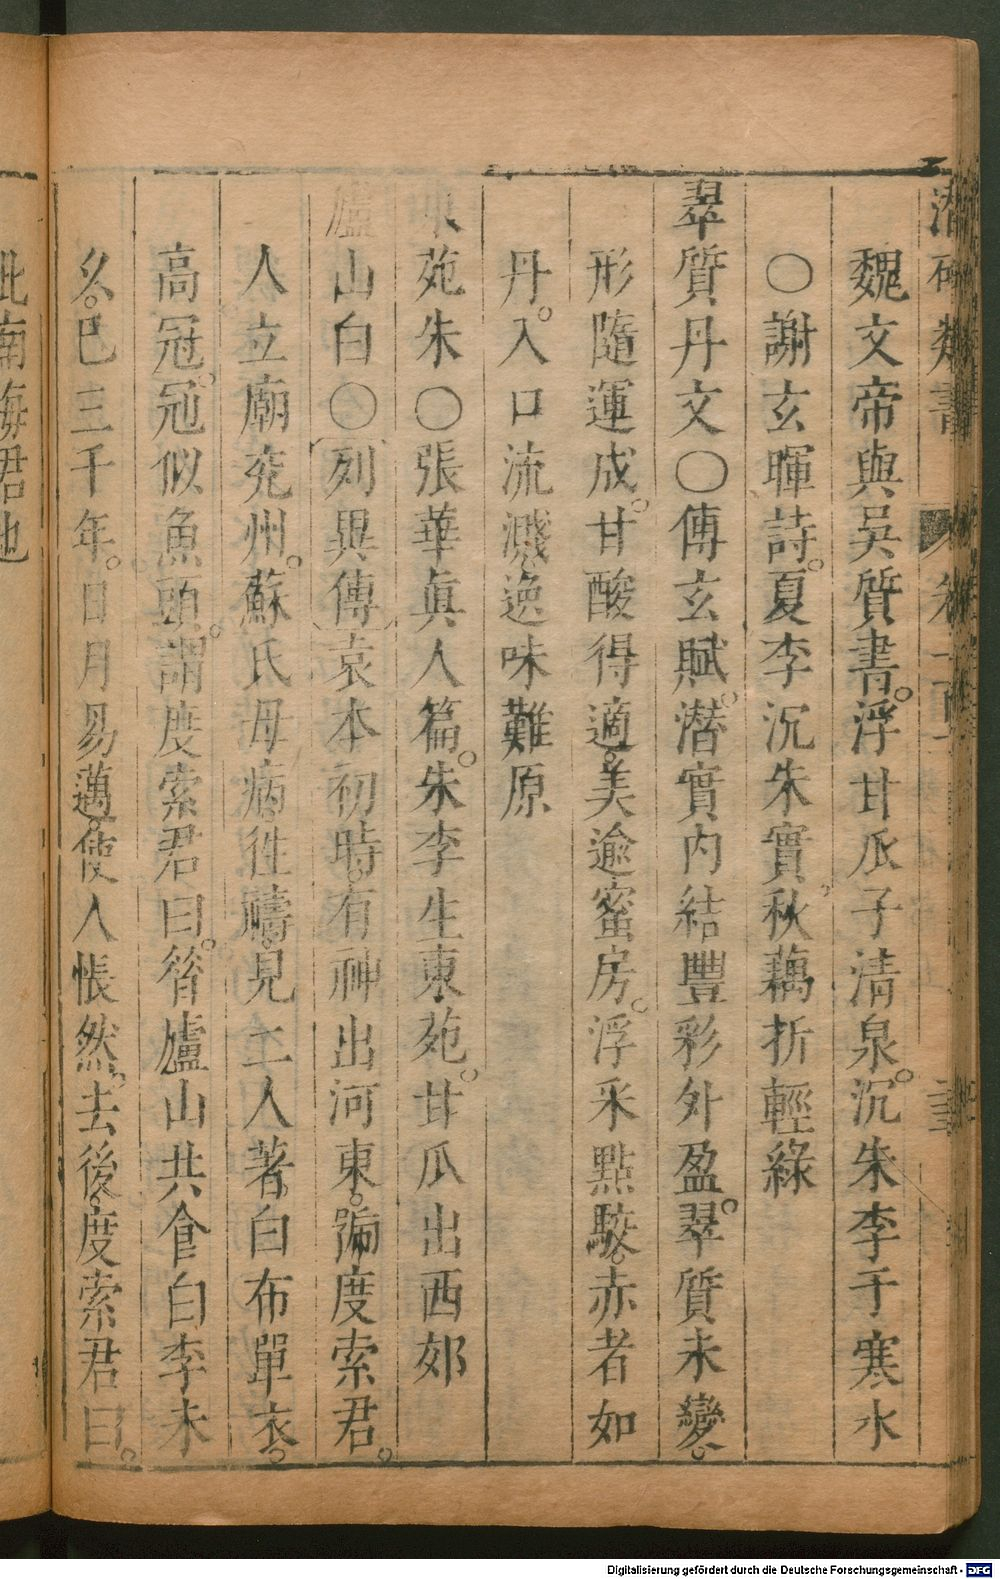 潛確類書 卷一百
魏文帝與吳質書。浮甘瓜子清泉。沉朱李于寒水
〇謝玄暉詩。夏李沉朱實。秋藕折輕綠
翠質丹文〇傅玄賦。潛實內結豐彩外盈。翠質未變。
形隨運成。甘酸得適。美逾蜜房。浮采點駁。赤者如
丹。入口流濺。逸味難原
苑朱〇張華眞人篇。朱李生東苑。甘瓜出西郊
廬山白〇列異傳袁本初時。有神出河東。號度索君。
人立廟兖州。蘇氏母病。徃禱。見一人著。白布單衣。
高冠。冠似魚頭。謂度索君曰。昝廬山共食白李未
久。巳三千年。日月易邁。使人悵然。去後。度索君曰。
此南海君也
Digitalisierung gefördert durch die Deutsche Forschungsgemeinschaft - DFG